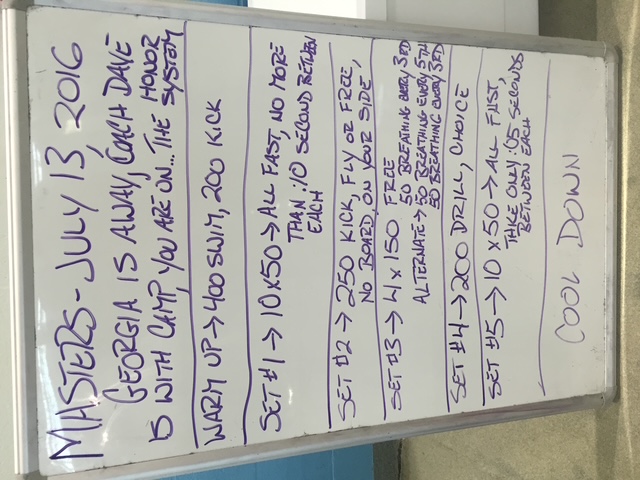 MASTERS - JULY 13, 2016
GEORGIA IS AWAY, COACH DAVE
IS WITH CAMP, YOU ARE ON... THE HONOR
SYSTEM
WARM UP → 400 SWIM, 200 KICK
SET #1 → 10x50 → ALL FAST, NO MORE
THAN :10 SECOND BETWEEN
EACH
SET #2 → 250 KICK, FLY OR FREE,
NO BOARD, ON YOUR SIDE
SET #3 → 4x150 FREE
50 BREATHING EVERY 3RD
ALTERNATE → 50 BREATHING EVERY 5TH
50 BREATHING EVERY 3RD
SET #4 → 200 DRILL, CHOICE
SET #5 → 10 x 50 → ALL FAST,
TAKE ONLY :05 SECONDS
BETWEEN EACH
COOL DOWN